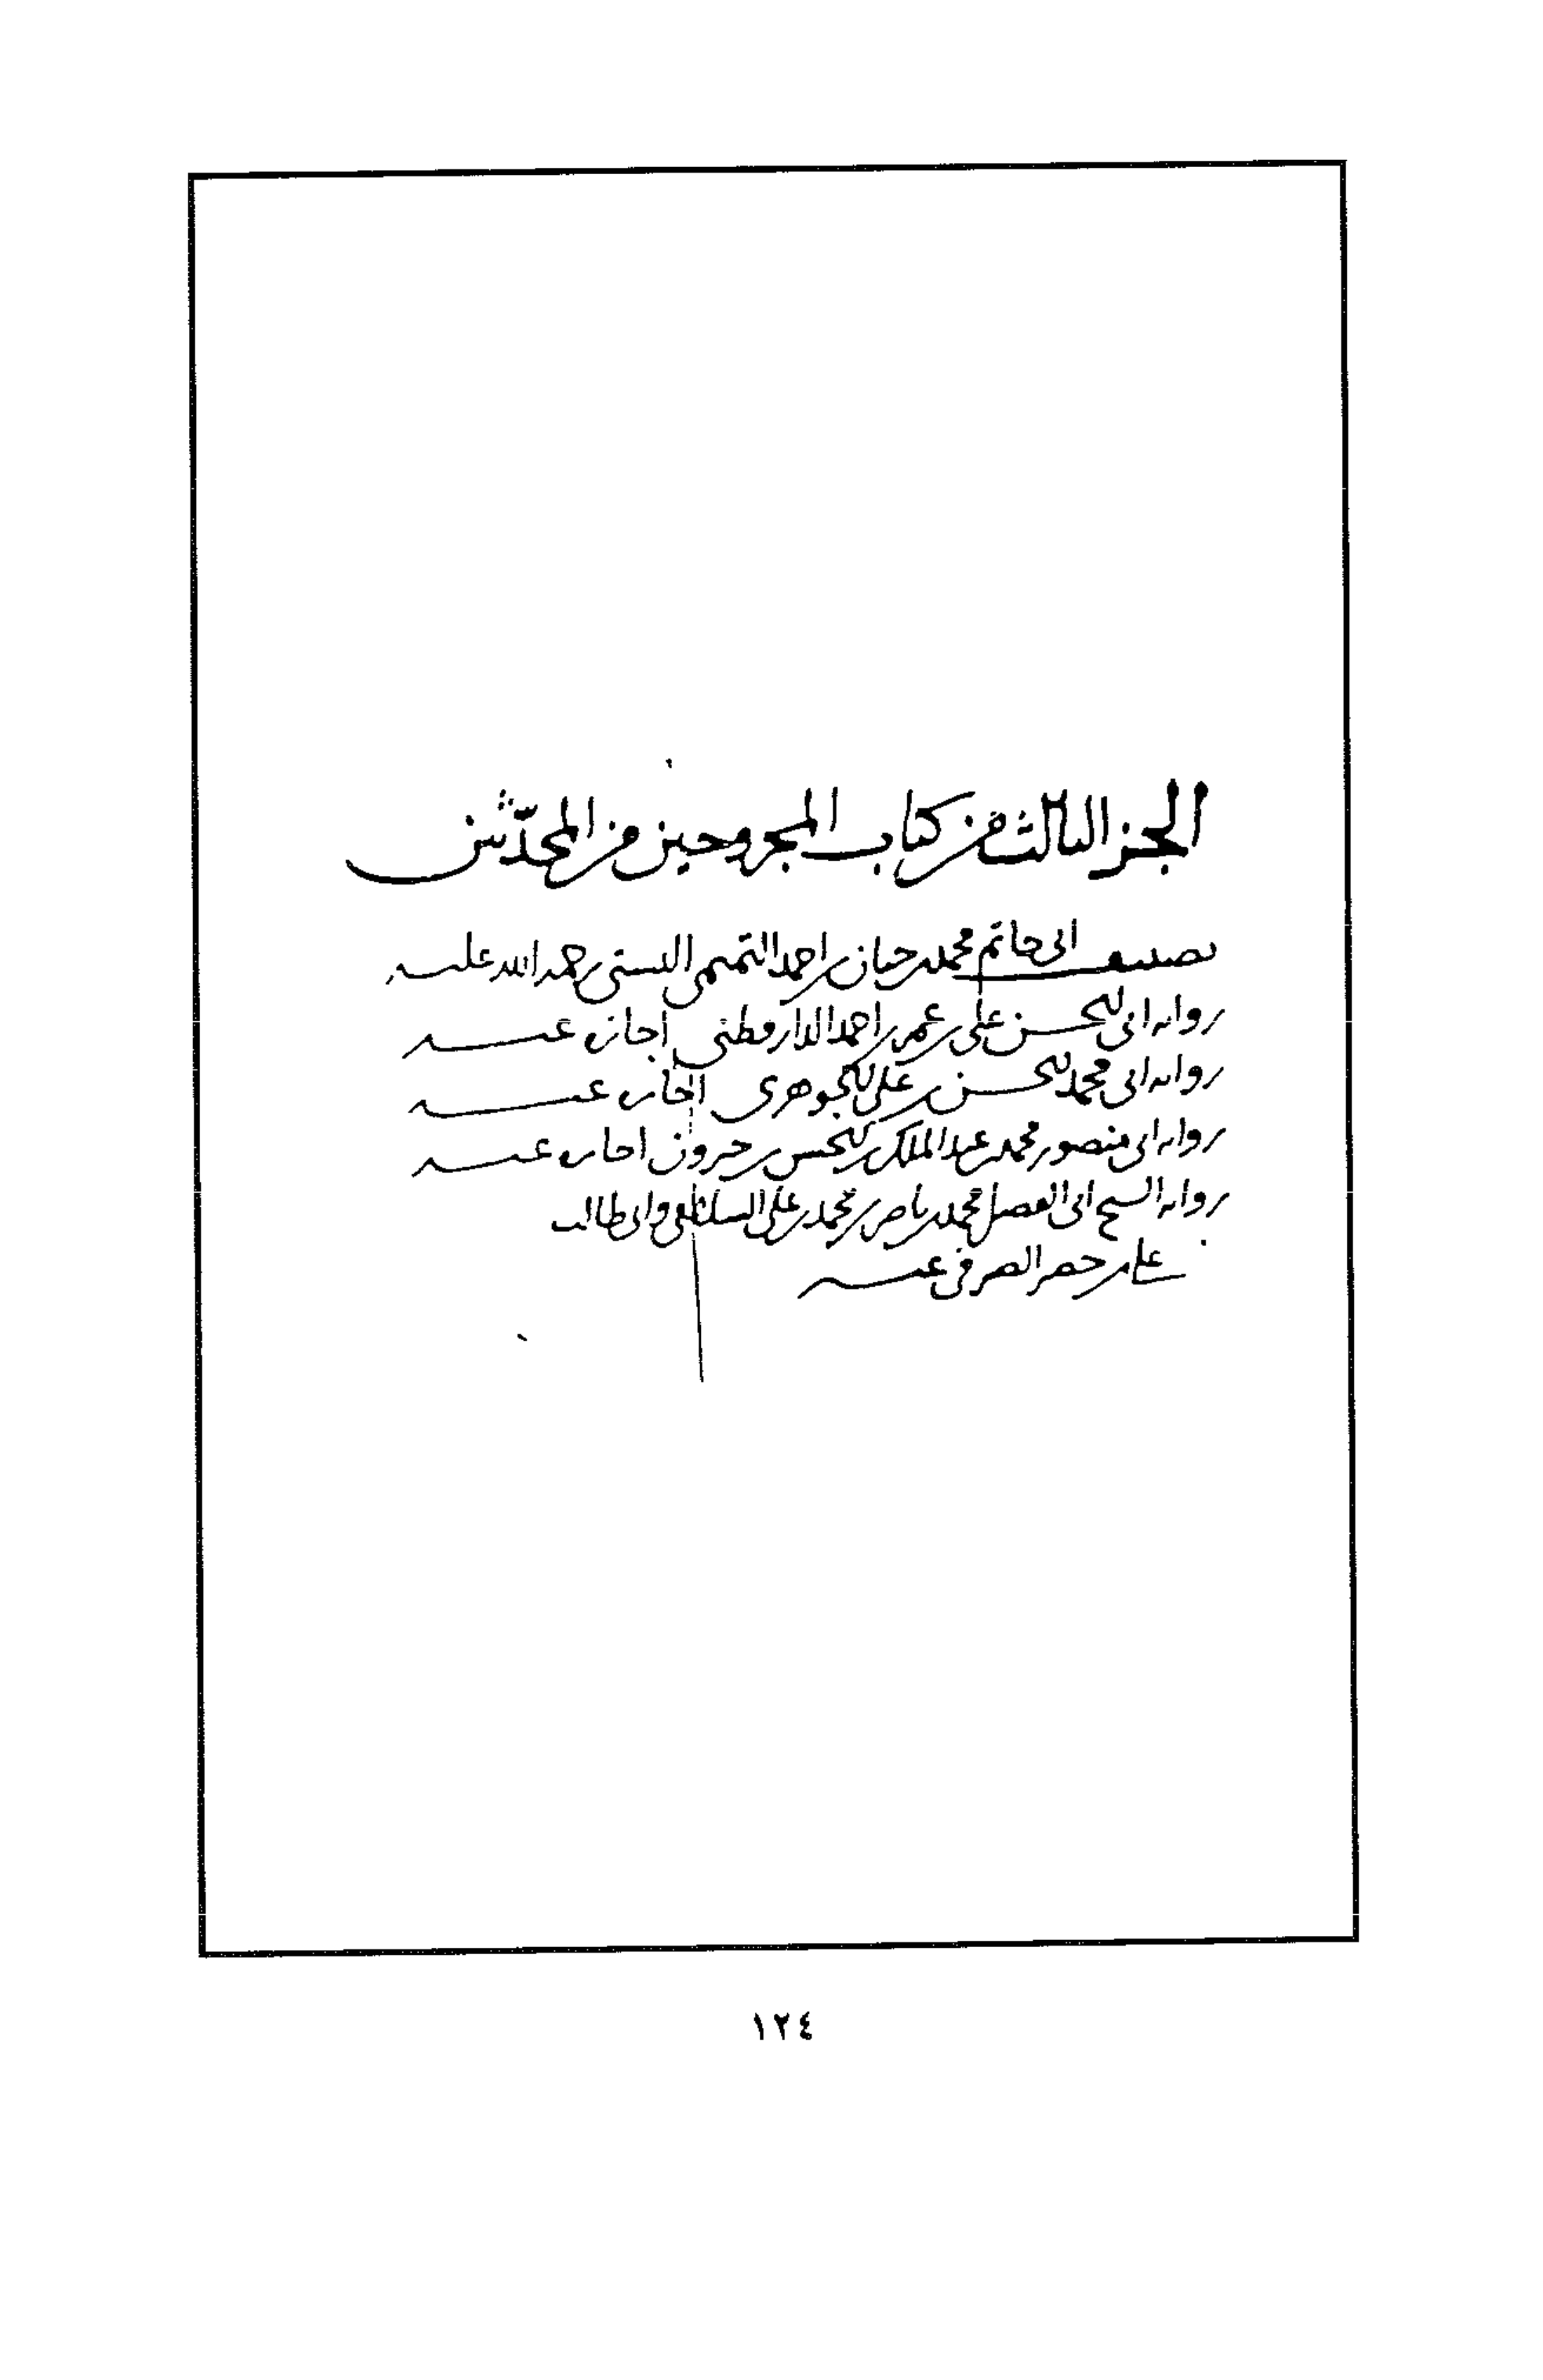 الجز الثالث من كتاب المجروحين من المحدّثين
تصنيف ابى حاتم محمد بن حبان بن احمد التميمى البستى رحمه الله عليه
روايه ابى الحسن على بن عمر بن احمد الدارقطنى اجازه عنه
روايه ابى محمد الحسن بن على الجوهرى اجازه عنه
روايه ابى منصور محمد بن عبد الملك بن الحسن بن خيرون اجازه عنه
روايه الشيخ ابى الفضل محمد بن ناصر بن محمد بن على السلامى وابى طالب
على بن الصيرفى عنه
١٢٤